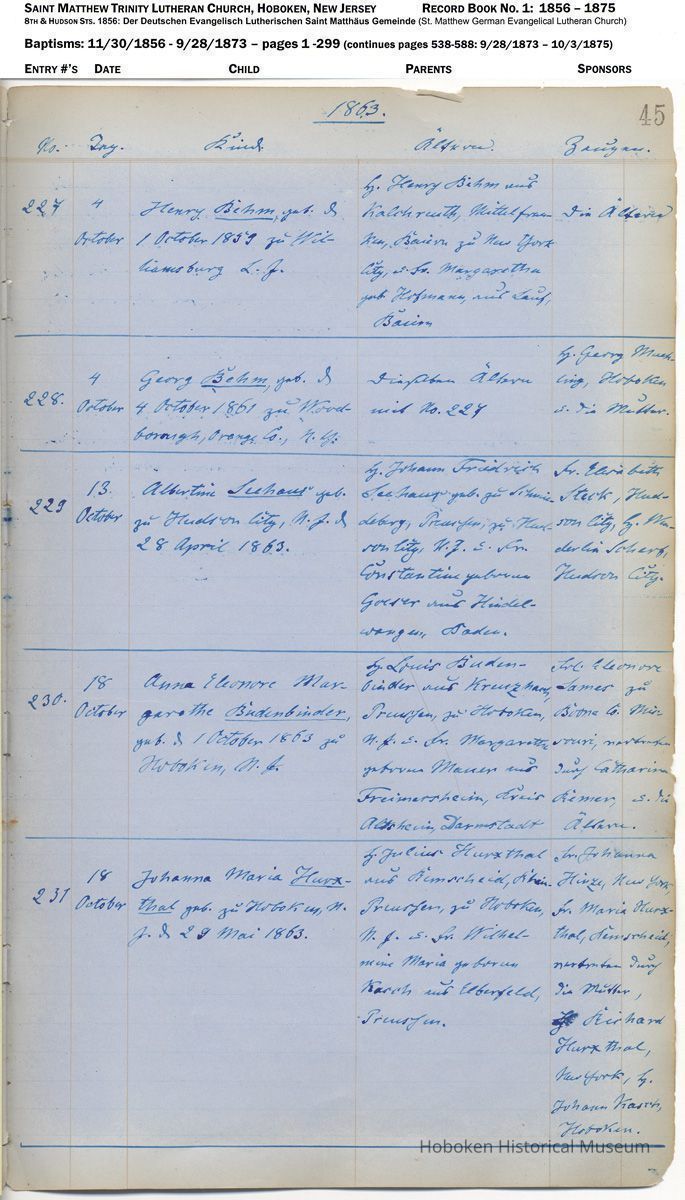 SAINT MATTHEW TRINITY LUTHERAN CHURCH, HOBOKEN, NEW JERSEY RECORD BOOK NO. 1: 1856 – 1875
8TH & HUDSON STS. 1856: Der Deutschen Evangelisch Lutherischen Saint Matthäus Gemeinde (St. Matthew German Evangelical Lutheran Church)
Baptisms: 11/30/1856 - 9/28/1873 – pages 1 -299 (continues pages 538-588: 9/28/1873 – 10/3/1875)
ENTRY #'S DATE CHILD PARENTS SPONSORS
1863. 45
No. Tag. Kind. Ältern. Zeugen.
227
4
October
Henry Behm, geb. d
1 October 1859 zu Wil-
liamsburg L. J.
H. Henry Behm aus
Kalchreuth, Mittelfran-
ken, Baiern zu New York
City, u. Fr. Margaretha
geb. Hofmann, aus Lauf,
Baiern
Die Ältern
228.
4
October
Georg Behm, geb. d
4 October 1861 zu
borough, Orange Co., N. Y.
Dieselben Ältern
mit No. 227
H. Georg
Hoboken
u. die Mutter.
229
13.
October
Albertine Seehaus geb.
zu Hudson City, N. J. d
28 April 1863.
H. Johann Friedrich
Seehaus geb. zu Schmie-
deberg, Preussen, zu Hud-
son City, N. J. u. Fr.
Constantine geborene
Goeser aus Hindel-
wangen, Baden.
Fr. Elisabeth
Steck, Hud-
son City, H. We-
delin Scherb,
Hudson City.
230.
18
October
Anna Eleonore Mar-
garethe Büdenbinder,
geb. d 1 October 1863 zu
Hoboken, N. J.
H. Louis Buden-
binder aus
Preussen, zu Hoboken,
N. J. u. Fr. Margaretha
geborene Mauer aus
Freimersheim, Kreis
Darmstadt
Frl. Eleonore
James zu
Boone Co. Mis-
souri, vertreten
durch Catharine
Riemer, u. die
Ältern.
231
18
October
Johanna Maria Hurx-
thal geb. zu Hoboken, N.
J. d 29 Mai 1863.
H. Julius Hurxthal
aus Remscheid, Rhein-
Preussen, zu Hoboken,
N. J. u. Fr. Wilhel-
mine Maria geborene
Kasch aus Elberfeld,
Preussen.
Fr. Johanna
Hinze, New York,
Fr. Maria Hurx-
thal, Remscheid,
vertreten durch
die Mutter,
H. Richard
Hurxthal,
New York, H.
Johann Kasch,
Hoboken.
Hoboken Historical Museum